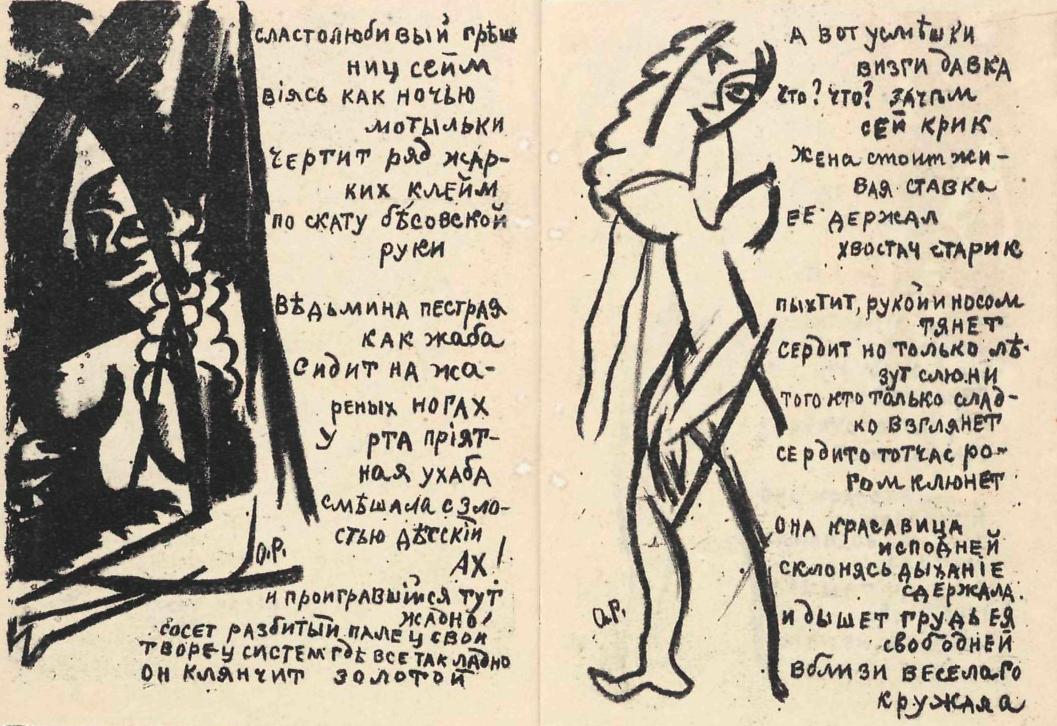 сластолюбивый грѣш
ниц сейм
віясь как ночью
мотыльки
чертит ряд жар-
ких клейм
по скату бѣсовской
руки
вѣдьмина пестрая
как жаба
сидит на жа-
реных ногах
у рта пріят-
ная ухаба
смѣшала с зло-
стью дѣтскій
АХ!
О.Р.
и проигравшійся тут
жадно
сосет разбитый палец свой
творец систем гдѣ все так ладно
он клянчит золотой
А вот усмѣшки
визги давка
что? что? зачѣм
сей крик
Жена стоит жи-
вая ставка
ЕЕ держал
хвостач старик
пыхтит, рукой и носом
тянет
сердит но только лѣ-
зут слюни
того кто только слад-
ко взглянет
сердито тотчас ро-
гом клюнет
О.Р.
Она красавица
исподней
склонясь дыханіе
сдержала.
и дышет грудь ея
свободней
вблизи веселаго
кружала